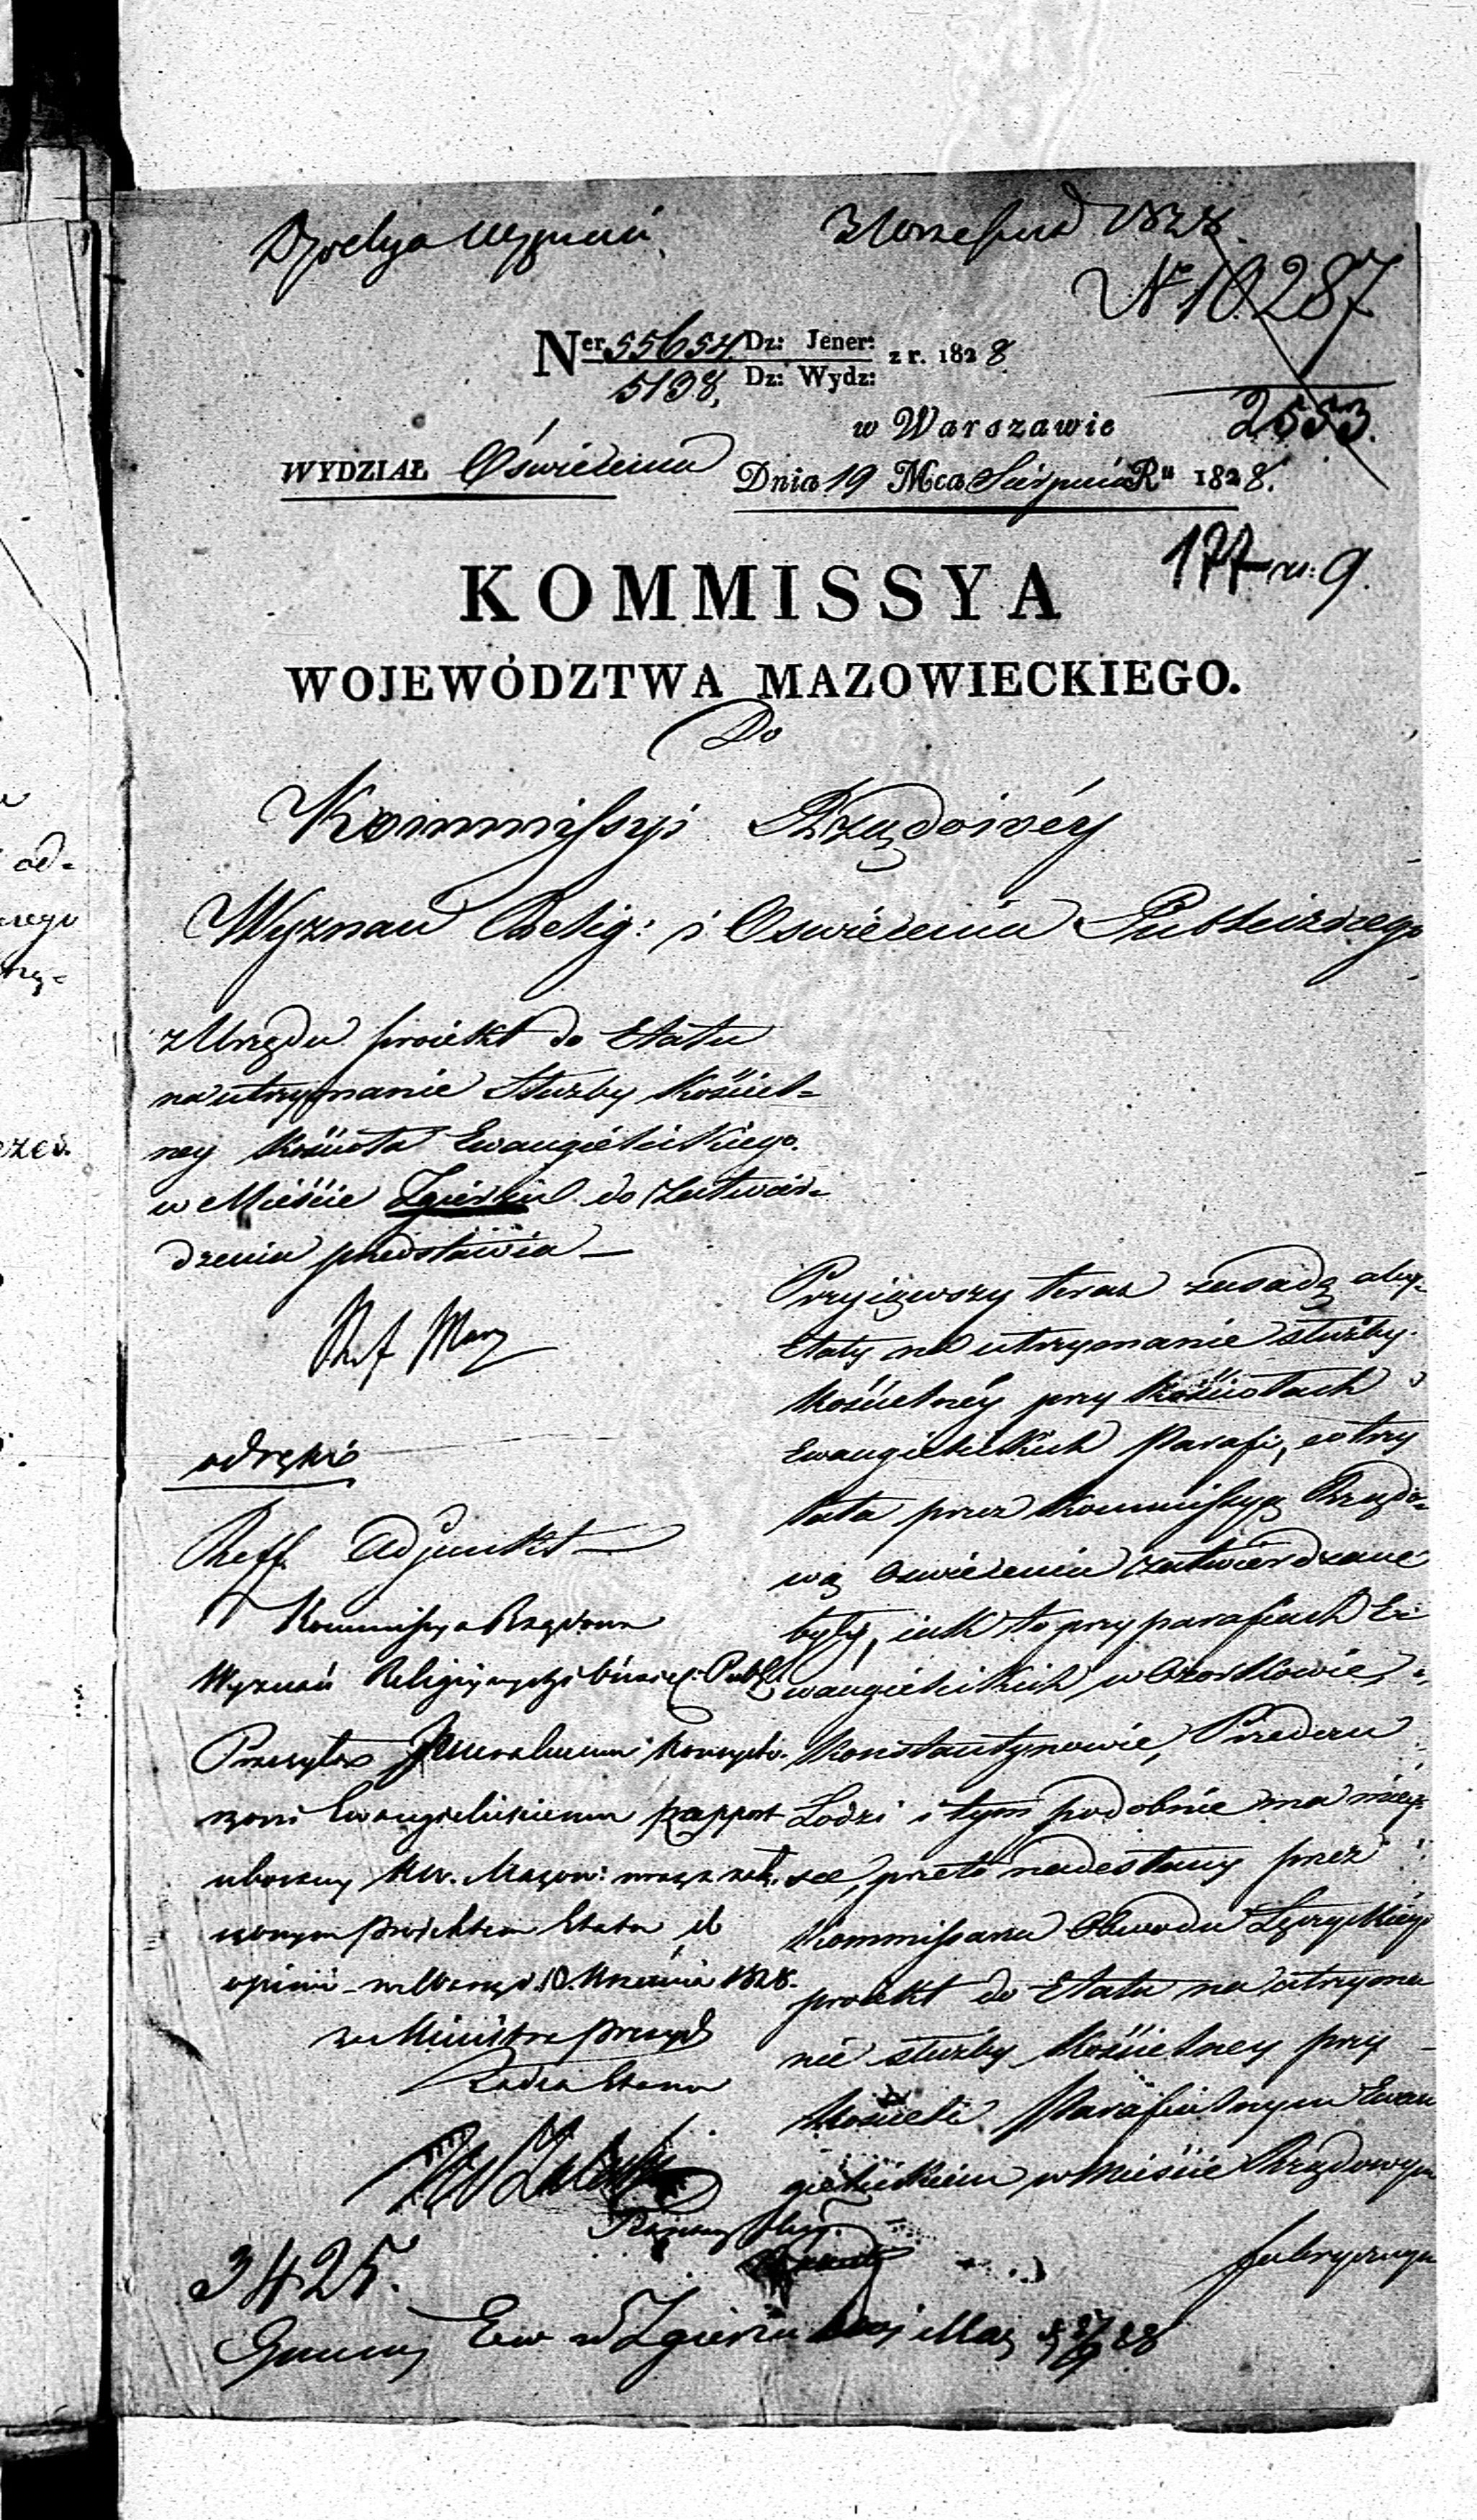 Dyrekcya Wyznań
3 Września 1828.
N 10.287
2553.
Ner 55654 Dz: Jener: z r. 1828
5198, Dz: Wydz:
w Warszawie
WYDZIAŁ Oświecenia Dnia 19 Mca Sierpnia Ru 1828.
177 9.
KOMMISSYA
WOJEWÓDZTWA MAZOWIECKIEGO.
Do
Kommissyi Rządowéy
Wyznań Relig: i Oswiecenia Publicznego
z Urzędu proiekt do Etatu
na utrzymanie Służby Kościel-
ney Kościoła Ewangielickiego
w Mieście Zgierzu do zatwier-
dzenia przedstawia —
Przyiąwszy teraz zasadę aby
Etaty na utrzymanie służby
Kościelnéy przy Kościołach
Ewangielickich Parafi, co trzy
lata przez Kommissyą Rządo-
wą Oswiecenia zatwierdzane
były, iak to przy parafiach E-
wangielickich w Ozorkowie,
Konstantynowie, Przedczu
Łodzi i tym podobnie ma miey-
sce, przeto nadesłany przez
Kommissarza Obwodu Łęczyckiego
proiekt do Etatu na utrzyma
nie służby Kościelney przy
Kościele Parafialnym Ewan
gielickiem w Mieście Rządowym
fabrycznym
Reff. Adjunkt
Kommissya Rządowa
Wyznań Religijnych i Oświec: Publ:
Przesyła Jeneralnemu Konsysto-
rzowi Ewangielickiemu rapport
uboczny Kw. Mazow: wraz z załą-
czonym proiektem Etatu do
opinii – w Warsz. d. 10. Września 1828.
w Ministra Prezyd
Radca Stanu
3425.
Gminy Ew w Zgierzu Maz 28